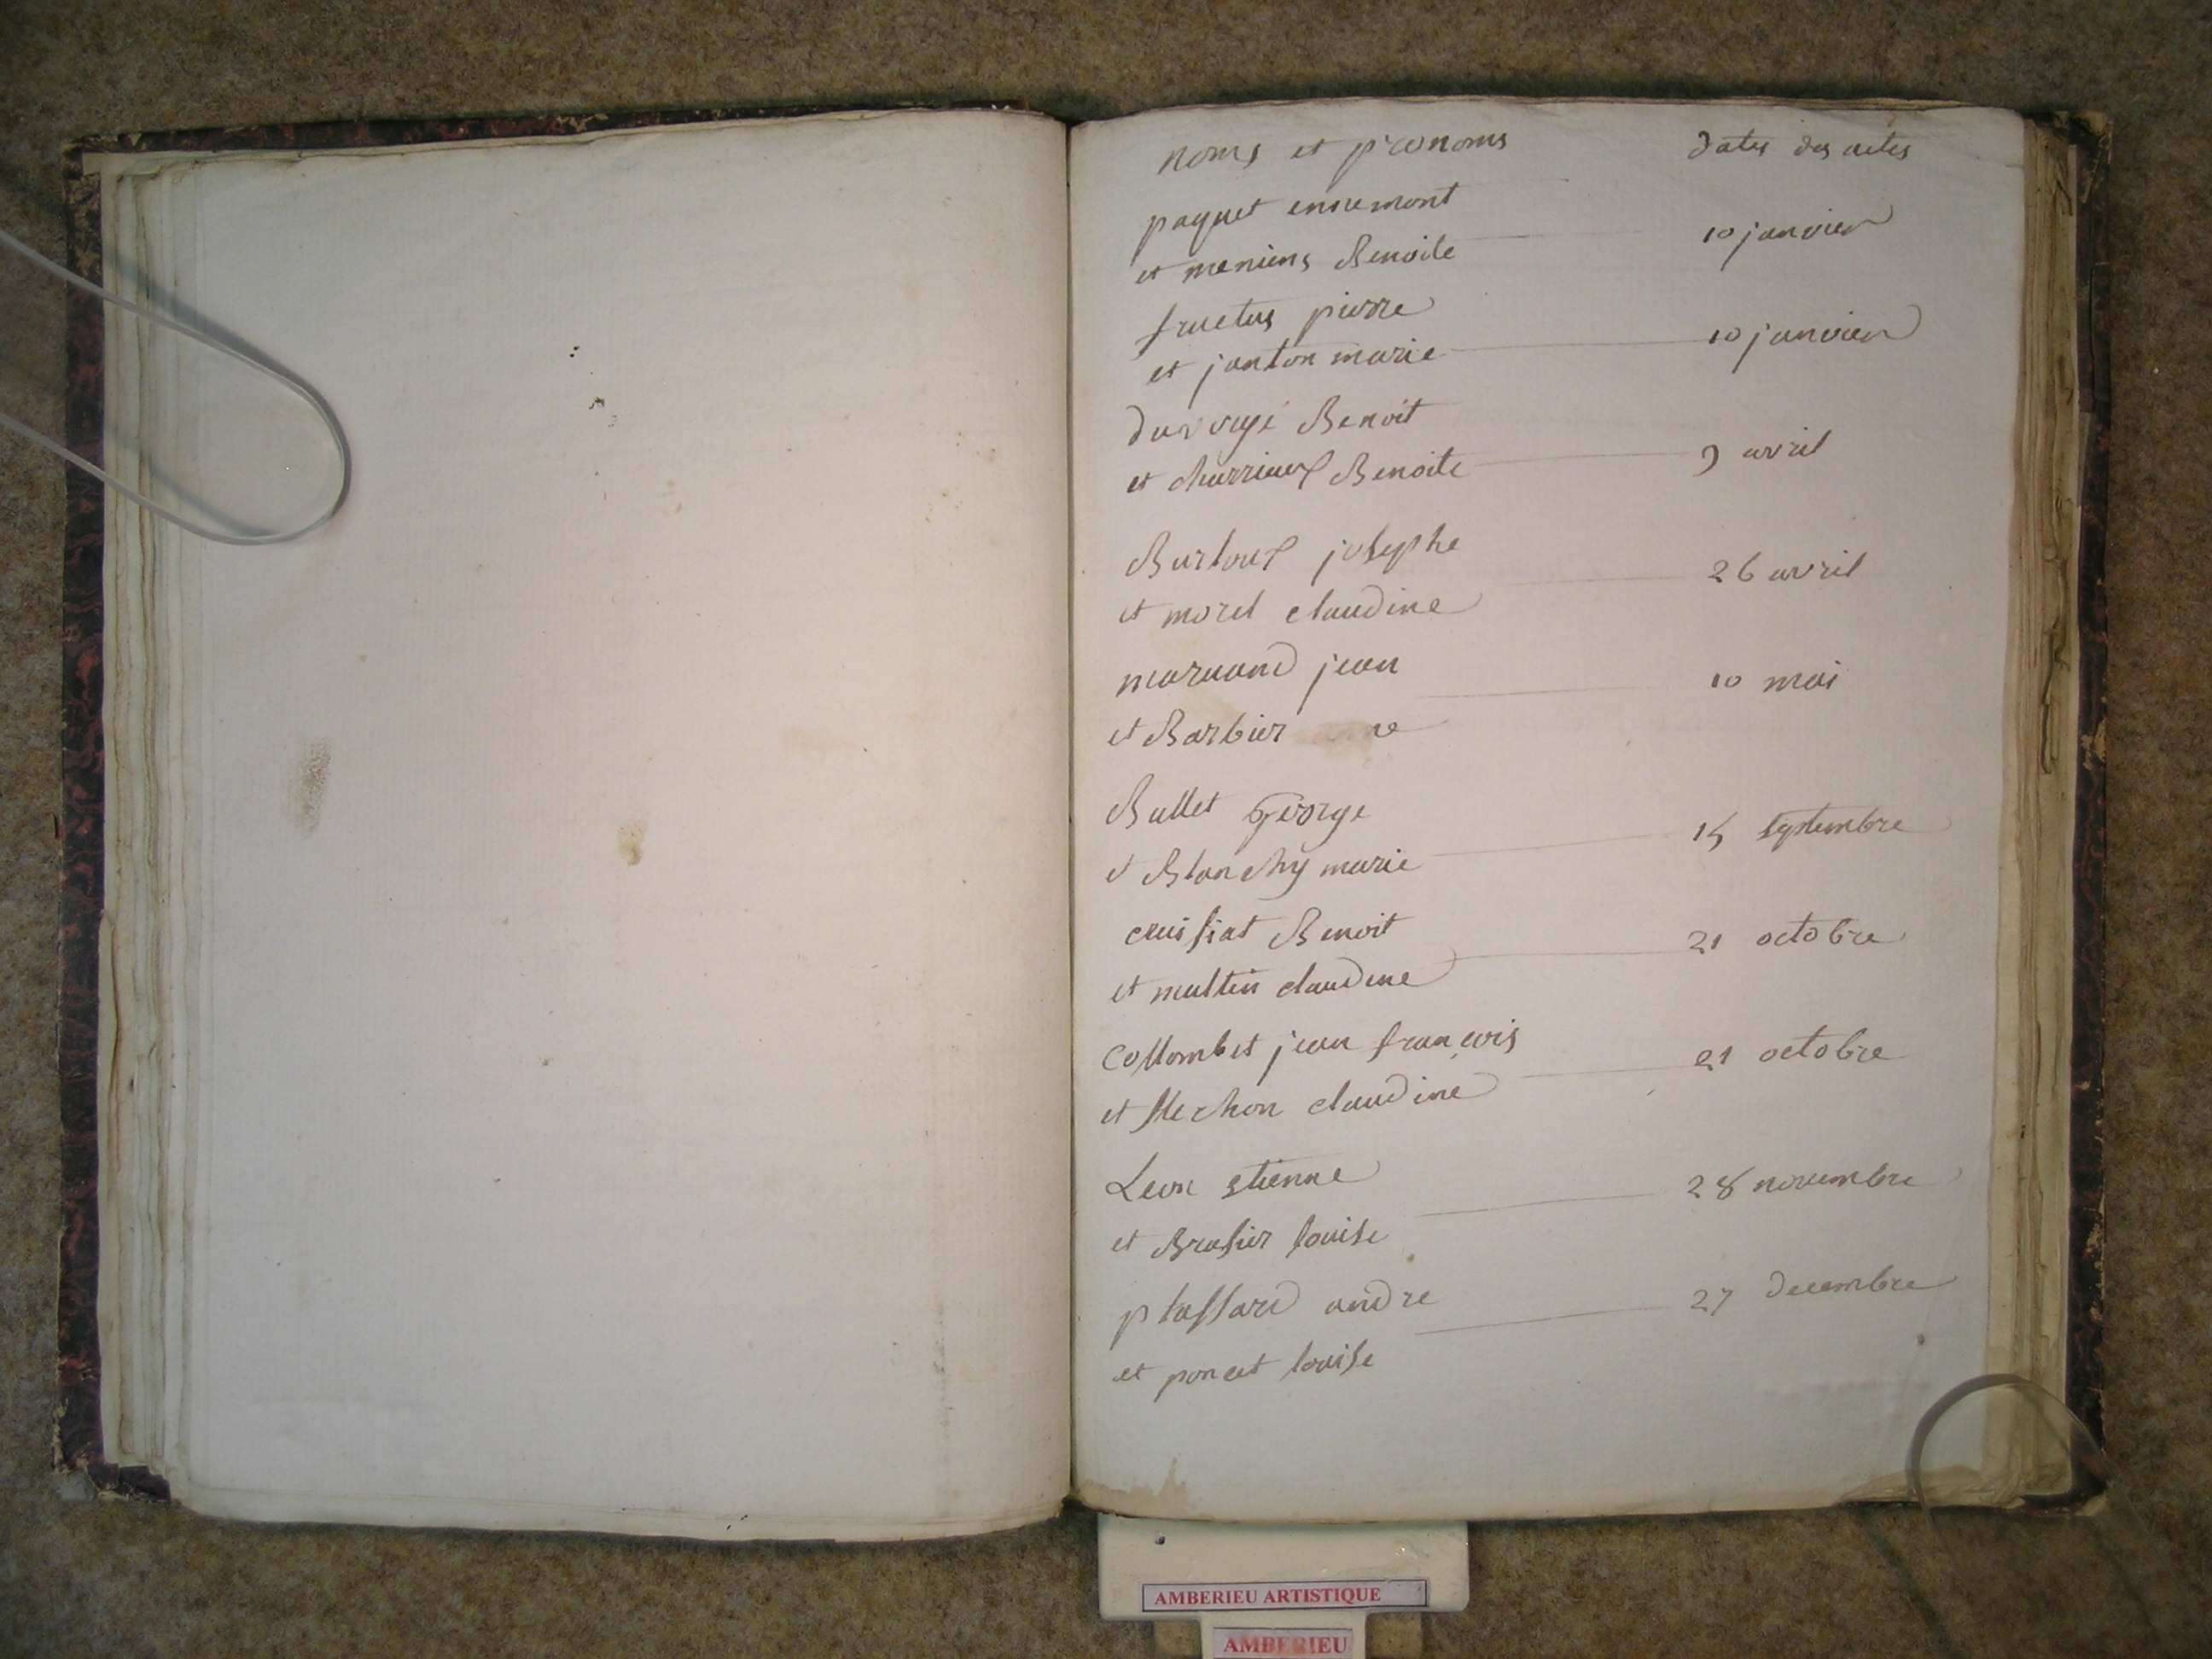 noms et prenoms dates des actes
paquet ennemont
et meniens Benoite 10 janvier
fructus pierre
et janton marie 10 janvier
Benoit
et charrioux Benoite 9 avril
Burtoux josephe
et morel claudine 26 avril
maruand jean 10 mai
et Barbier
Bullet George
et Blanchy marie 15 septembre
cruisiat Benoit
et multin claudine 21 octobre
Collombet jean françois
et claudine 21 octobre
Leon etienne
et Brasier louise 28 novembre
plassard andre 27 decembre
et poncet louise
AMBERIEU ARTISTIQUE
AMBERIEU